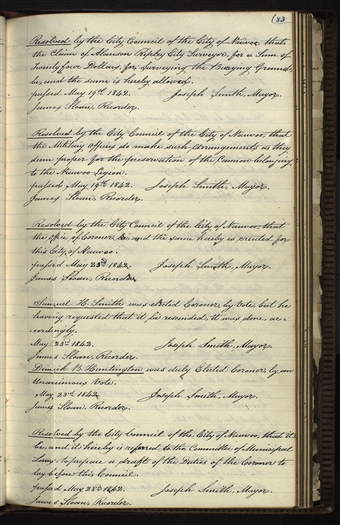 83
Resolved by the City Council of the City of Nauvoo, that
the Claim of Alanson Ripley City Surveyor, for a Sum of
Twenty four Dollars, for Surveying the Burying Ground,
be, and the same is hereby allowed.
passed May 19th 1842. Joseph Smith, Mayor.
James Sloan, Recorder.
Resolved by the City Council of the City of Nauvoo, that
the Military Officers do make such arrangements as they
deem proper for the preservation of the Cannon belonging
to the Nauvoo Legion.
passed May 19th 1842. Joseph Smith, Mayor.
James Sloan, Recorder.
Resolved by the City Council of the City of Nauvoo, that
the Office of Coroner be and the same hereby is created for
this City of Nauvoo.
passed May 23d 1842. Joseph Smith, Mayor.
James Sloan, Recorder.
Samuel H. Smith was elected Coroner, by Vote, but he
having requested that it be rescinded, it was done ac-
cordingly.
May 23d 1842. Joseph Smith, Mayor.
James Sloan, Recorder.
Dimick B. Huntington was duly Elected Coroner, by an
Unanimous Vote.
May 23d 1842. Joseph Smith, Mayor.
James Sloan, Recorder.
Resolved by the City Council of the City of Nauvoo, that it
be, and it hereby is referred to the Committee of Municipal
Laws, to prepare a draft of the Duties of the Coroner to
lay before this Council.
passed May 23d 1842. Joseph Smith, Mayor.
James Sloan, Recorder.